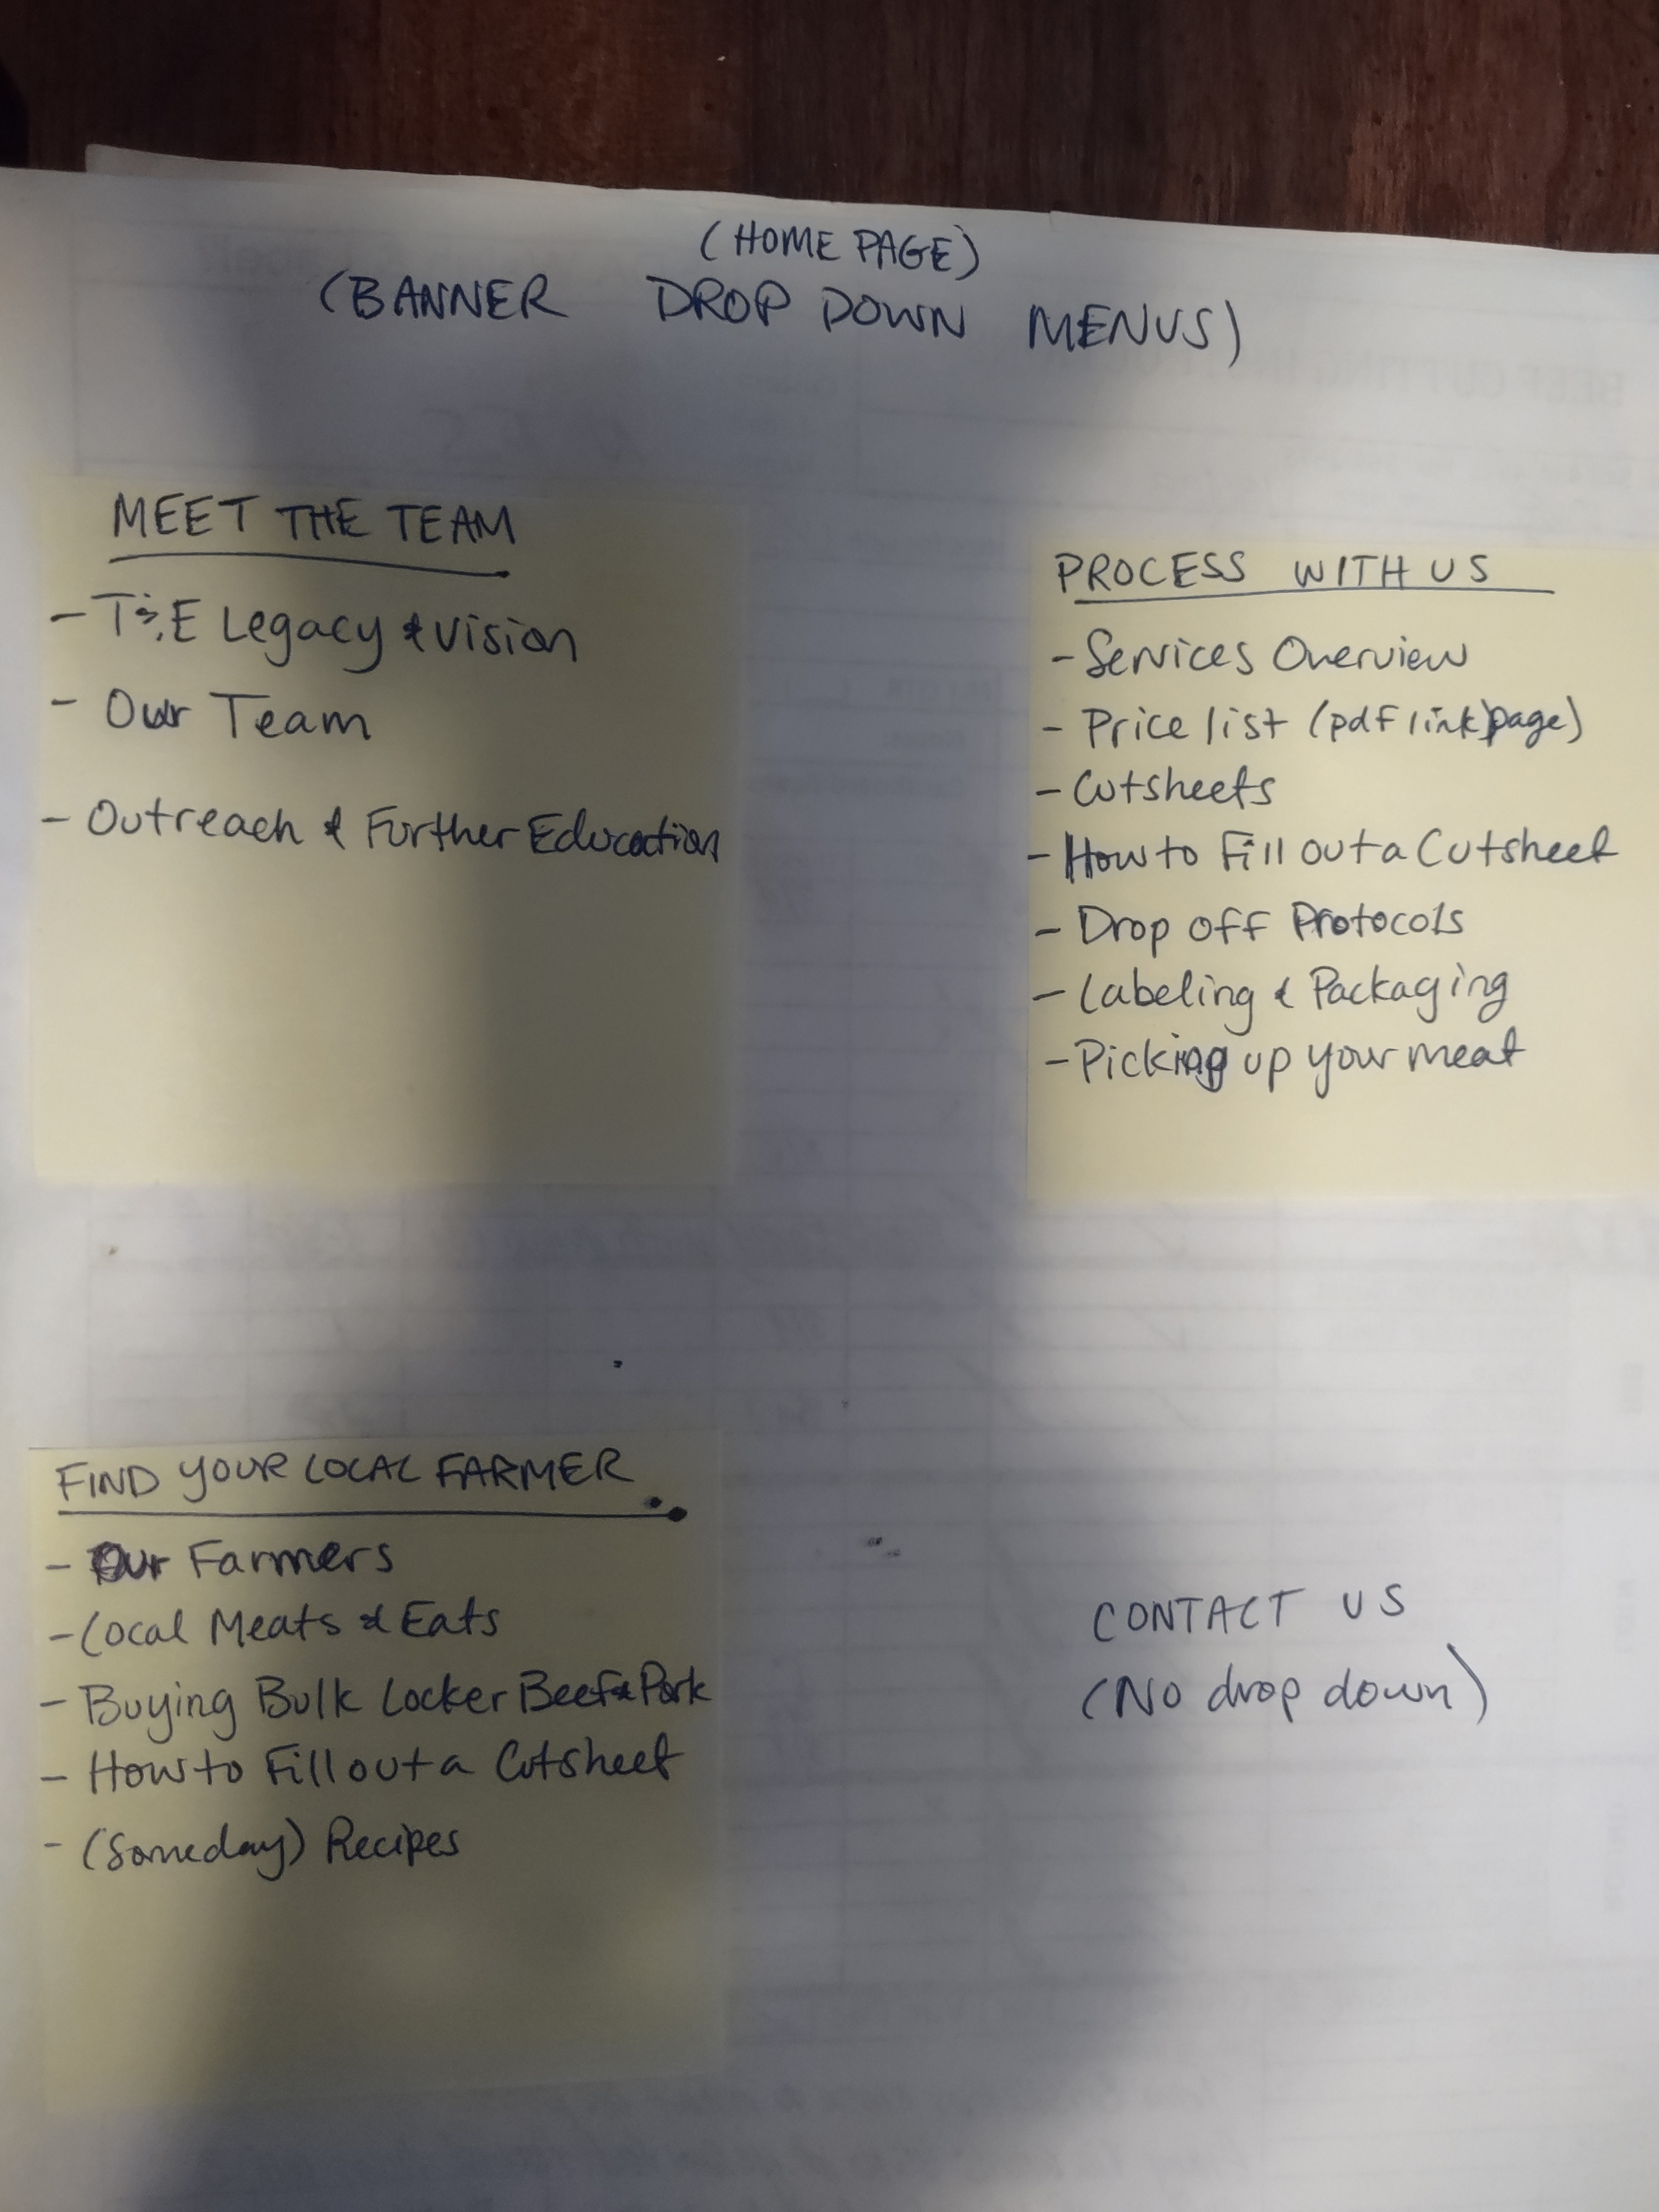 (HOME PAGE)
(BANNER DROP DOWN MENUS)
MEET THE TEAM
- T&E Legacy & vision
- Our Team
- Outreach & Further Education
PROCESS WITH US
- Services Overview
- Price list (pdf link) page)
- Cutsheets
- How to Fill out a Cutsheet
- Drop off Protocols
- Labeling & Packaging
- Picking up your meat
FIND YOUR LOCAL FARMER
- Our Farmers
- Local Meats & Eats
- Buying Bulk Locker Beef & Pork
- How to Fill out a Cutsheet
- (Someday) Recipes
CONTACT US
(No drop down)